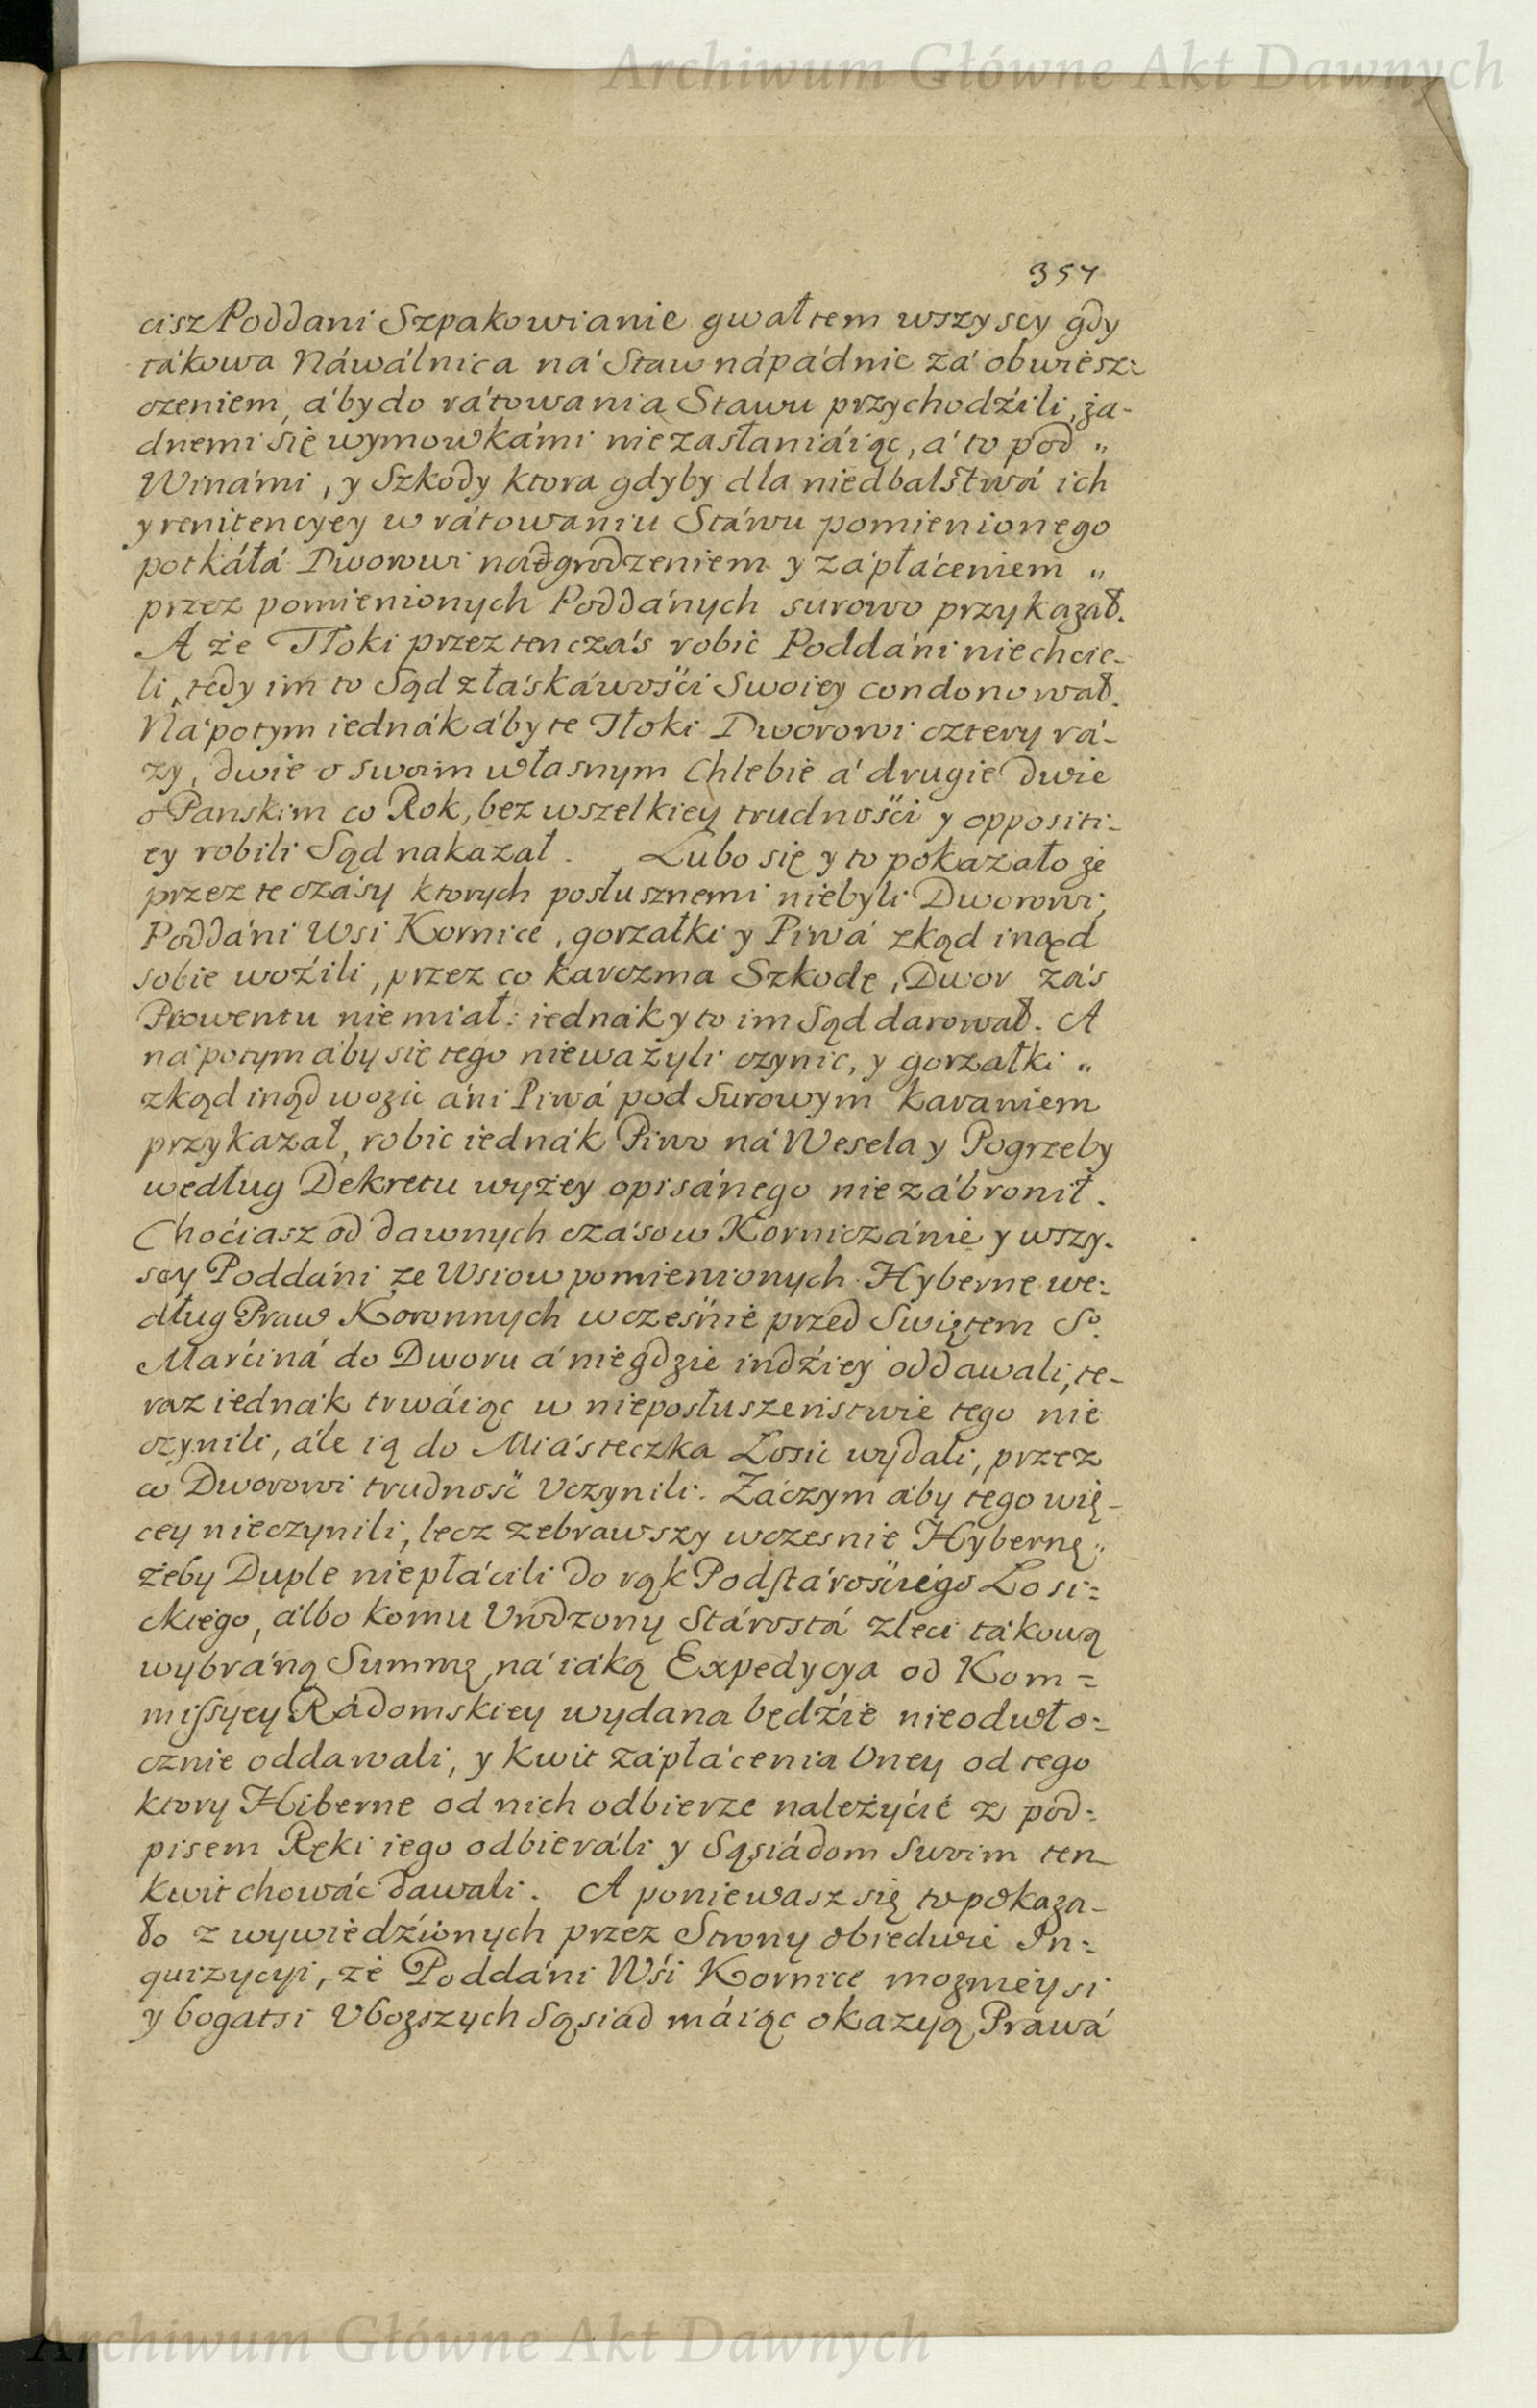 Archiwum Główne Akt Dawnych
357
cisz Poddani Szpakowianie gwałtem wszyscy gdy
tákowa Náwálnica ná Staw nápádnie zá obwiesz:
czeniem, áby do rátowania Stawu przychodźili, ża-
dnemi się wymowkámi niezasłaniáiąc, á to pod „
Winámi, y Szkody ktora gdyby dla niedbalstwá ich
y renitencyey w rátowaniu Stáwu pomienionego
potkáłá Dworowi nadgrodzeniem y zápłáceniem „
przez pomienionych Poddánych surowo przykazał.
A że Tłoki przez ten czás robić Poddáni niechcie-
li, tedy im to Sąd z łáskáwości Swoiey condonował.
Nápotym iednák áby te Tłoki Dworowi cztery rá-
zy, dwie o swoim własnym Chlebie á drugie dwie
o Panskim co Rok, bez wszelkiey trudności y oppositi-
ey robili Sąd nakazał. Lubo się y to pokazało że
przez te czásy ktorych posłusznemi niebyli Dworowi,
Poddáni Wsi Kornice, gorzałki y Piwá zkąd inąd
sobie woźili, przez co karczma Szkodę, Dwor zás
Prowentu nie miał: iednák y to im Sąd darował. A
nápotym áby się tego nieważyli czynic, y gorzałki „
zkąd inąd wozic áni Piwá pod Surowym karaniem
przykazał, robic iednák Piwo ná Wesela y Pogrzeby
według Dekretu wyżey opisánego niezábronił.
Choćiasz od dawnych czásow Korniczánie y wszy-
scy Poddáni ze Wsiow pomienionych Hyberne we:
dług Praw Koronnych wcześnie przed Swiętem So.
Marćiná do Dworu á niegdzie indźiey oddawali, te-
raz iednák trwáiąc w nieposłuszeństwie tego nie
czynili, ále ią do Miásteczka Łosic wydali, przez
co Dworowi trudność Vczynili. Záczym áby tego wię-
cey nieczynili, lecz zebrawszy wczesnie Hybernę „
żeby Duple niepłácili do rąk Podstárościego Łosi:
ckiego, álbo komu Vrodzony Stárostá zleci tákową
wybráną Summę, ná iáką Expedycya od Kom=
missyey Rádomskiey wydana będźie nieodwło:
cznie oddawali, y kwit zápłácenia Oney od tego
ktory Hiberne od nich odbierze należyćie z pod:
pisem Ręki iego odbieráli y Sąsiádom Swoim ten
kwit chowáć dawali. A poniewasz się to pokaza-
ło z wywiedźionych przez Strony obiedwie In:
quizycyi, że Poddáni Wśi Kornice możnieysi
y bogatsi Vboższych Sąsiad máiąc okazyą Prawá
Archiwum Główne Akt Dawnych